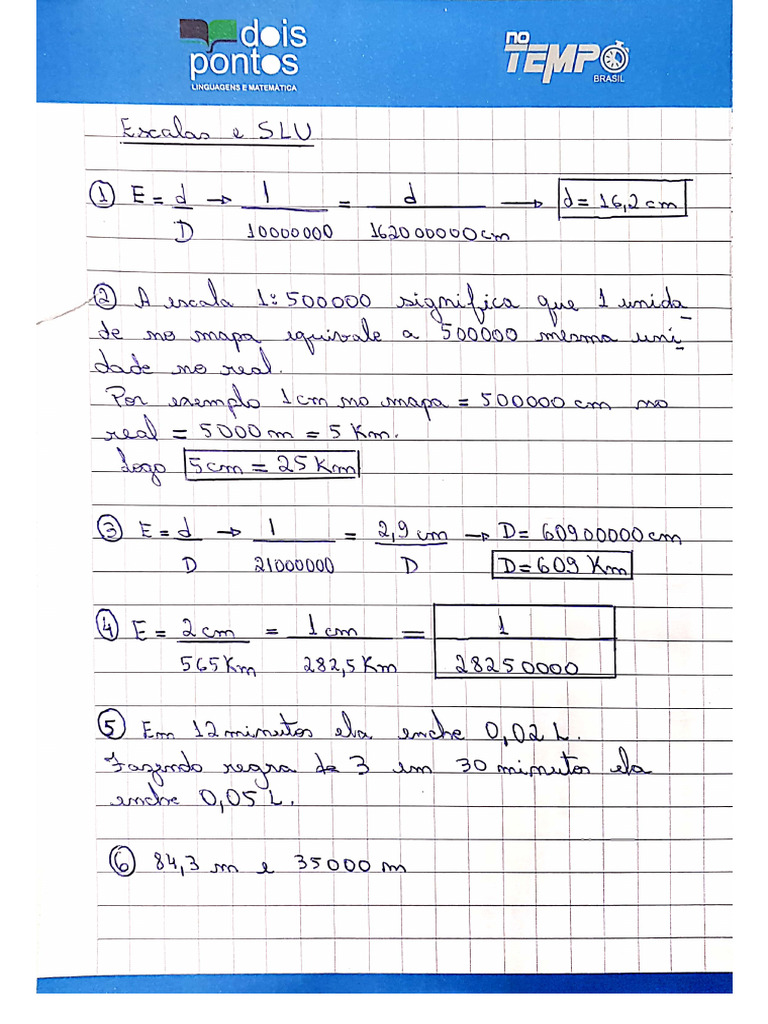 dois
pontos
LINGUAGENS E MATEMÁTICA
NO
TEMPO
BRASIL
Escalas e SLU
① E = d/D → 1/10000000 = d/162000000cm → d = 16,2 cm
② A escala 1:500000 significa que 1 unida_
de no mapa equivale a 500000 mesma uni_
dade no real.
Por exemplo 1cm no mapa = 500000 cm no
real = 5000 m = 5 Km.
Logo 5cm = 25 Km
③ E = d/D → 1/21000000 = 2,9 cm/D → D = 60900000cm
D = 609 Km
④ E = 2cm/565Km = 1cm/282,5Km = 1/28250000
⑤ Em 12 minutos ela enche 0,02 L.
Fazendo regra de 3 em 30 minutos ela
enche 0,05 L.
⑥ 84,3 m e 35000 m